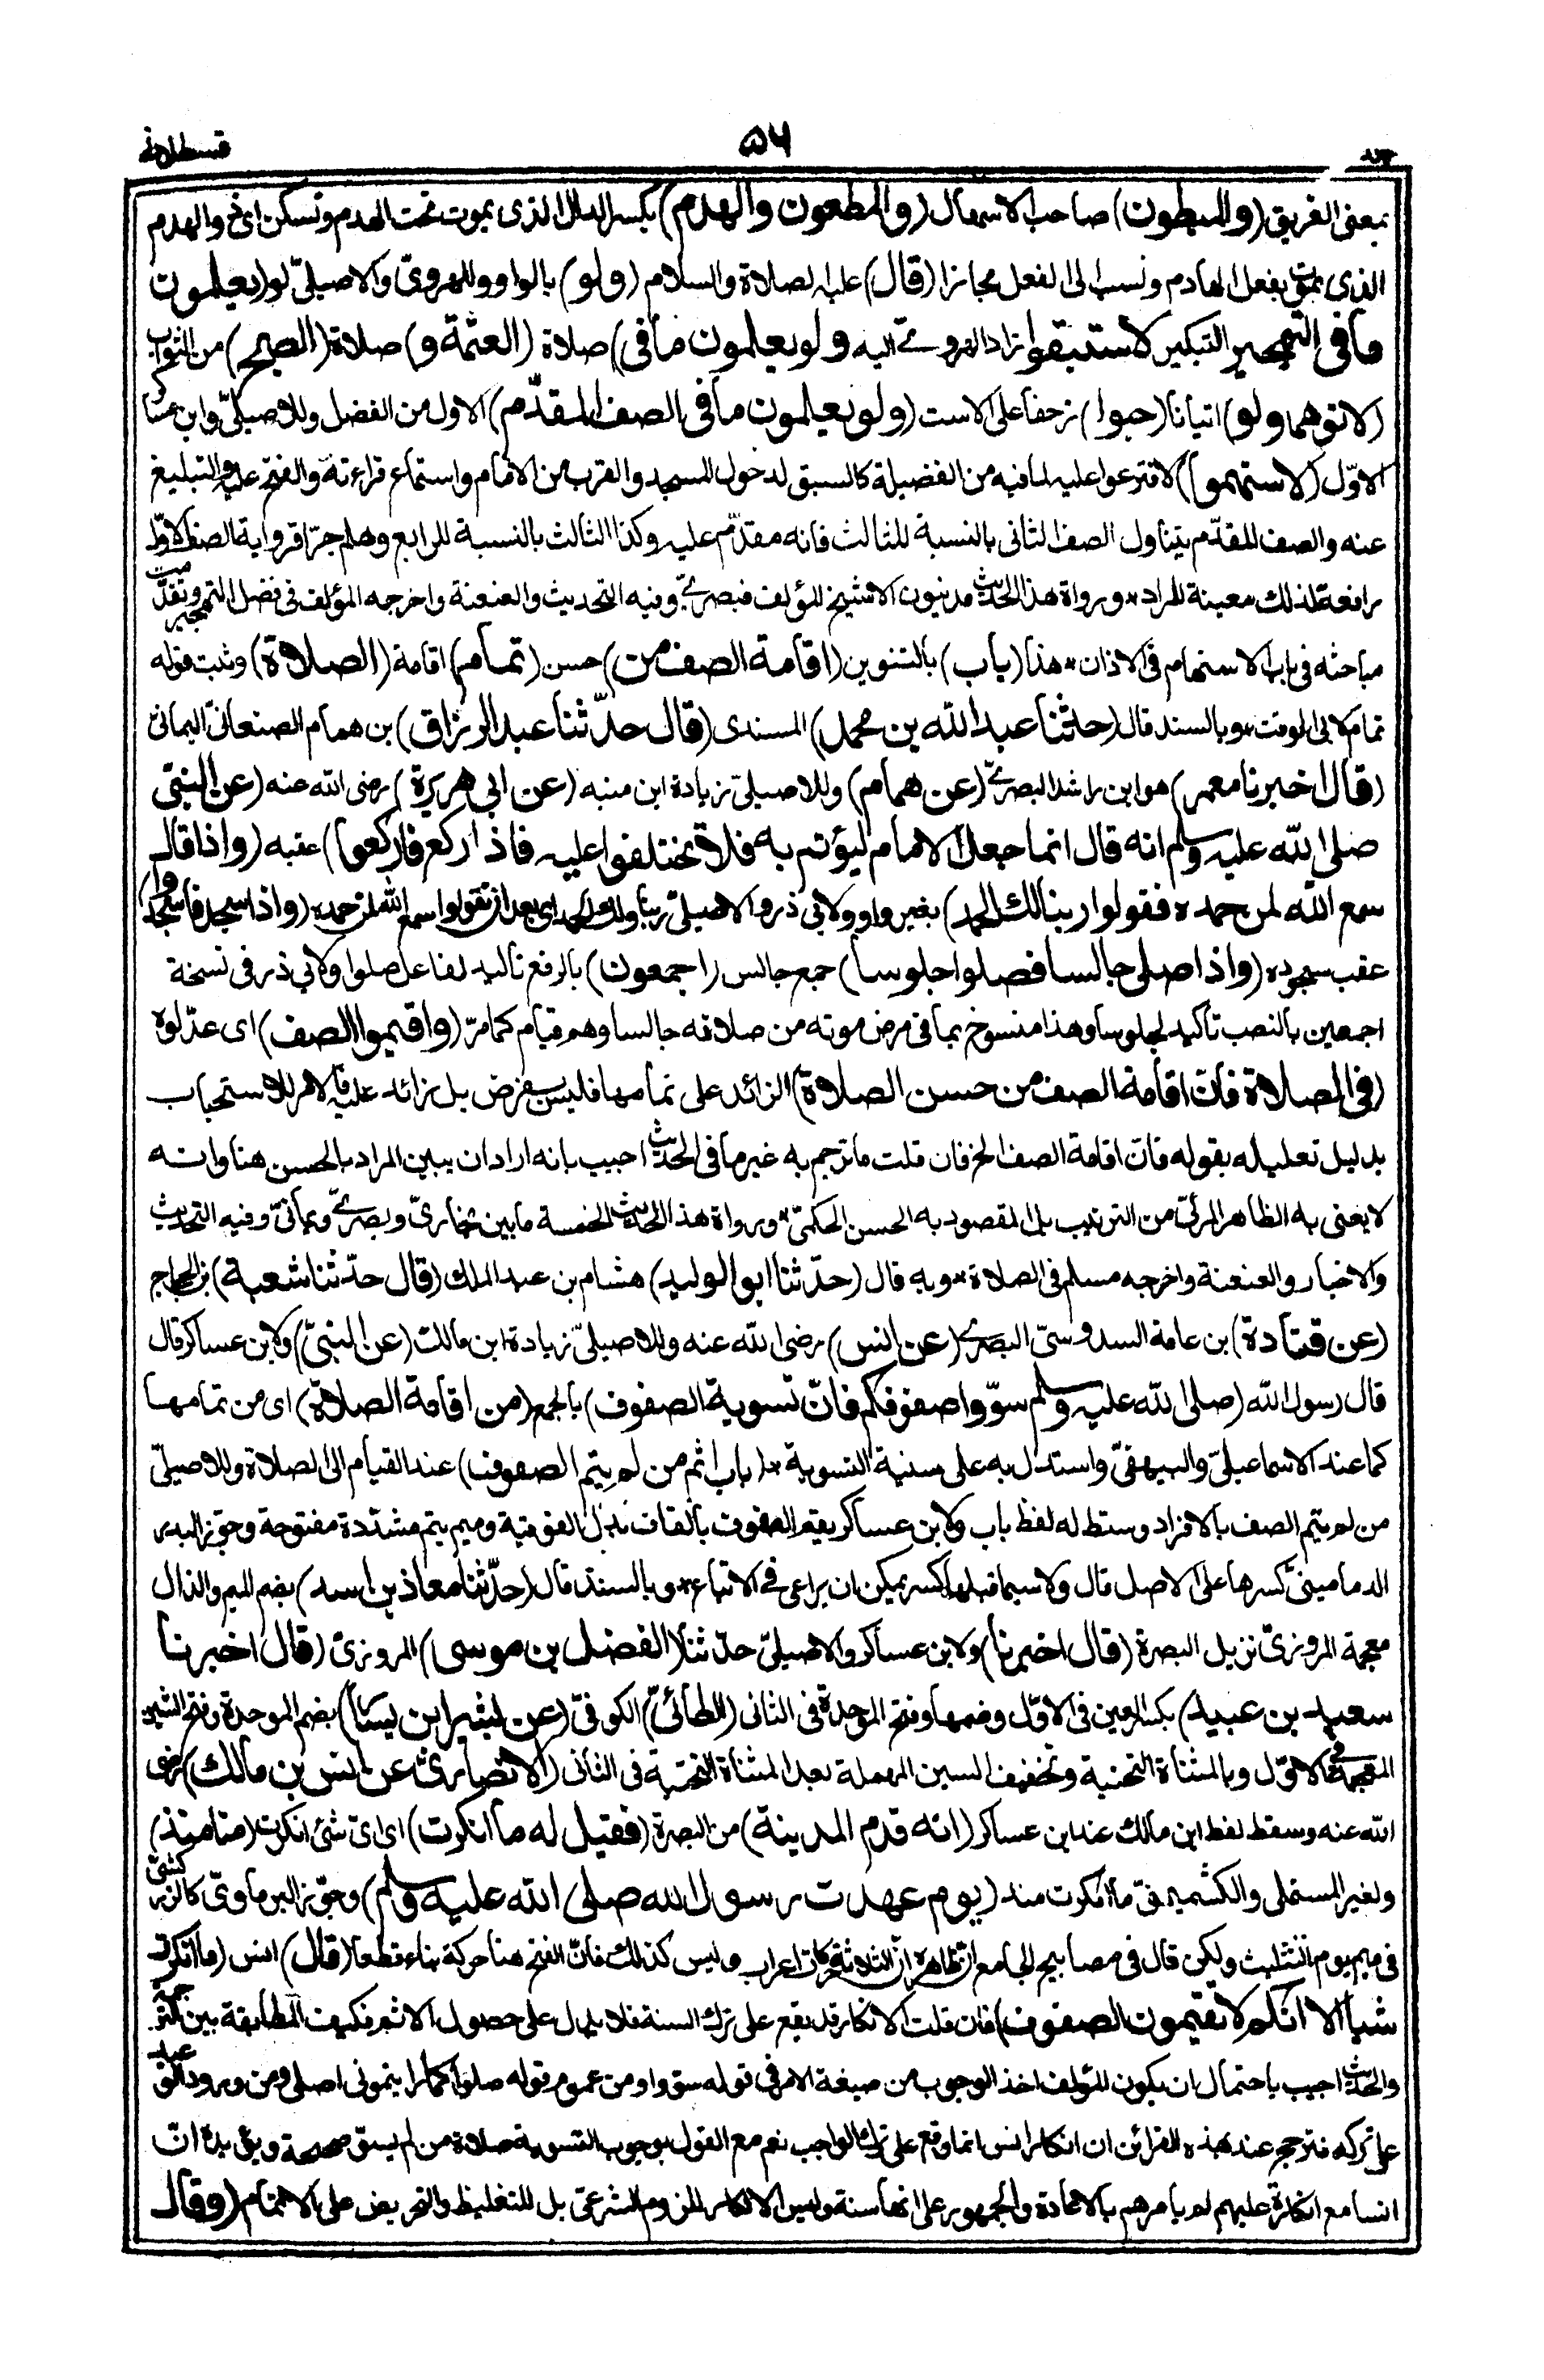 قسطلانى
٥٦
بمعنى الغريق (والمبطون) صاحب الاسهال (والمطعون والهدم) بكسر الدال الذى يموت تحت الهدم وتسكن اى ذو الهدم
الذى يموت بفعل الهادم ونسب الى الفعل مجازا (قال) عليه الصلاة والسلام (ولو) بالواو وللهروىّ والاصيلىّ لو (يعلمون
ما فى التهجير) التبكير (لاستبقوا) زاد الهروىّ اليه (ولو يعلمون ما فى) صلاة (العتمة و) صلاة (الصبح) من الثواب
(لاتوهما ولو) اتيانا (حبوا) زحفا على الاست (ولو يعلمون ما فى الصف المقدّم) الاول من الفضل وللاصيلىّ وابن عساكر
الاوّل (لاستهموا) لاقترعوا عليه لما فيه من الفضيلة كالسبق لدخول المسجد والقرب من الامام واستماع قراءته والفتح عليه والتبليغ
عنه والصف المقدّم يتناول الصف الثانى بالنسبة للثالث فانه مقدّم عليه وكذا الثالث بالنسبة للرابع وهلم جرّا فرواية الصف الاوّل
رافعة لذلك معينة للمراد * ورواة هذا الحديث مدنيون الا شيخ المؤلف فبصرىّ وفيه التحديث والعنعنة واخرجه المؤلف فى فضل التهجير وتقدّمت
مباحثه فى باب الاستهام فى الاذان * هذا (باب) بالتنوين (اقامة الصف من) حسن (تمام) اقامة (الصلاة) وثبت قوله
تمام لابى الوقت * وبالسند قال (حدثنا عبد الله بن محمد) المسندى (قال حدّثنا عبد الرزاق) بن همام الصنعانىّ اليمانىّ
(قال اخبرنا معمر) هو ابن راشد البصرىّ (عن همام) وللاصيلىّ زيادة ابن منبه (عن ابى هريرة) رضى الله عنه (عن النبىّ
صلى الله عليه وسلم انه قال انما جعل الامام ليؤتم به فلا تختلفوا عليه فاذا ركع فاركعوا) عقبه (واذا قال
سمع الله لمن حمده فقولوا ربنا لك الحمد) بغير واو ولابى ذر والاصيلىّ ربنا ولك الحمد اى بعد ان تقولوا سمع الله لمن حمده (واذا سجد فاسجدوا)
عقب سجوده (واذا صلى جالسا فصلوا جلوسا) جمع جالس (اجمعون) بالرفع تأكيد لفاعل صلوا ولابى ذر فى نسخة
اجمعين بالنصب تأكيد لجلوسا وهذا منسوخ بما فى مرض موته من صلاته جالسا وهم قيام كما مرّ (واقيموا الصف) اى عدّلوه
(فى الصلاة فانّ اقامة الصف من حسن الصلاة) الزائد على تمامها فليس بفرض بل زائد عليه فالامر للاستحباب
بدليل تعليله بقوله فانّ اقامة الصف الخ فان قلت ما ترجم به غير ما فى الحديث اجيب بانه اراد ان يبين المراد بالحسن هنا وانه
لا يعنى به الظاهر المرئىّ من الترتيب بل المقصود به الحسن الحكمىّ * ورواة هذا الحديث الخمسة ما بين بخارىّ وبصرىّ ويمانىّ وفيه التحديث
والاخبار والعنعنة واخرجه مسلم فى الصلاة * وبه قال (حدّثنا ابو الوليد) هشام بن عبد الملك (قال حدّثنا شعبة) بن الحجاج
(عن قتادة) بن عامة السدوسىّ البصرىّ (عن انس) رضى الله عنه وللاصيلىّ زيادة ابن مالك (عن النبىّ) ولابن عساكر قال
قال رسول الله (صلى الله عليه وسلم سوّوا صفوفكم فانّ تسوية الصفوف) بالجمع (من اقامة الصلاة) اى من تمامها
كما عند الاسماعيلىّ والبيهقىّ واستدل به على سنية التسوية * (باب اثم من لم يتم الصفوف) عند القيام الى الصلاة وللاصيلىّ
من لم يتم الصف بالافراد وسقط له لفظ باب ولابن عساكر يقيم الصفوف بالقاف بدل الفوقية وميم يتم مشدّدة مفتوحة وجوّز البدر
الدمامينىّ كسرها على الاصل قال ولا سيما قبلها كسر يمكن ان يراعى فى الاتباع * وبالسند قال (حدّثنا معاذ بن اسد) بضم الميم والذال
معجمة المروزىّ نزيل البصرة (قال اخبرنا) ولابن عساكر والاصيلىّ حدّثنا (الفضل بن موسى) المروزىّ (قال اخبرنا
سعيد بن عبيد) بكسر العين فى الاوّل وضمها وفتح الموحدة فى الثانى (الطائىّ) الكوفىّ (عن بشير ابن يسار) بضم الموحدة وفتح الشين
المعجمة فى الاوّل وبالمثناة التحتية وتخفيف السين المهملة بعد المثناة التحتية فى الثانى (الانصارىّ عن انس بن مالك) رضى
الله عنه وسقط لفظ ابن مالك عند ابن عساكر (انه قدم المدينة) من البصرة (فقيل له ما انكرت) اى اىّ شئ انكرت (منا منذ)
ولغير المستملى والكشميهنىّ ما انكرت منذ (يوم عهدت رسول الله صلى الله عليه وسلم) وجوّز البرماوىّ كالزركشىّ
فى ميم يوم التثليث ولكن قال فى مصابيح الجامع ان ظاهره ان الثلاثة حركات اعراب وليس كذلك فانّ الفتح هنا حركة بناء قطعا (قال) انس (ما انكرت
شيا الا انكم لا تقيمون الصفوف) فان قلت الانكار قد يقع على ترك السنة فلا يدل على حصول الاثم فكيف المطابقة بين الترجمة
والحديث اجيب باحتمال ان يكون المؤلف اخذ الوجوب من صيغة الامر فى قوله سوّوا ومن عموم قوله صلوا كما رايتمونى اصلى ومن ورود الوعيد
على تركه فترجح عنده بهذه القرائن ان انكار انس انما وقع على ترك الواجب نعم مع القول بوجوب التسوية صلاة من لم يسوّ صحيحة ويؤيده انّ
انسا مع انكاره عليهم لم يامرهم بالاعادة والجمهور على انها سنة وليس الانكار للزوم الشرعىّ بل للتغليظ والتحريض على الاهتمام (وقال